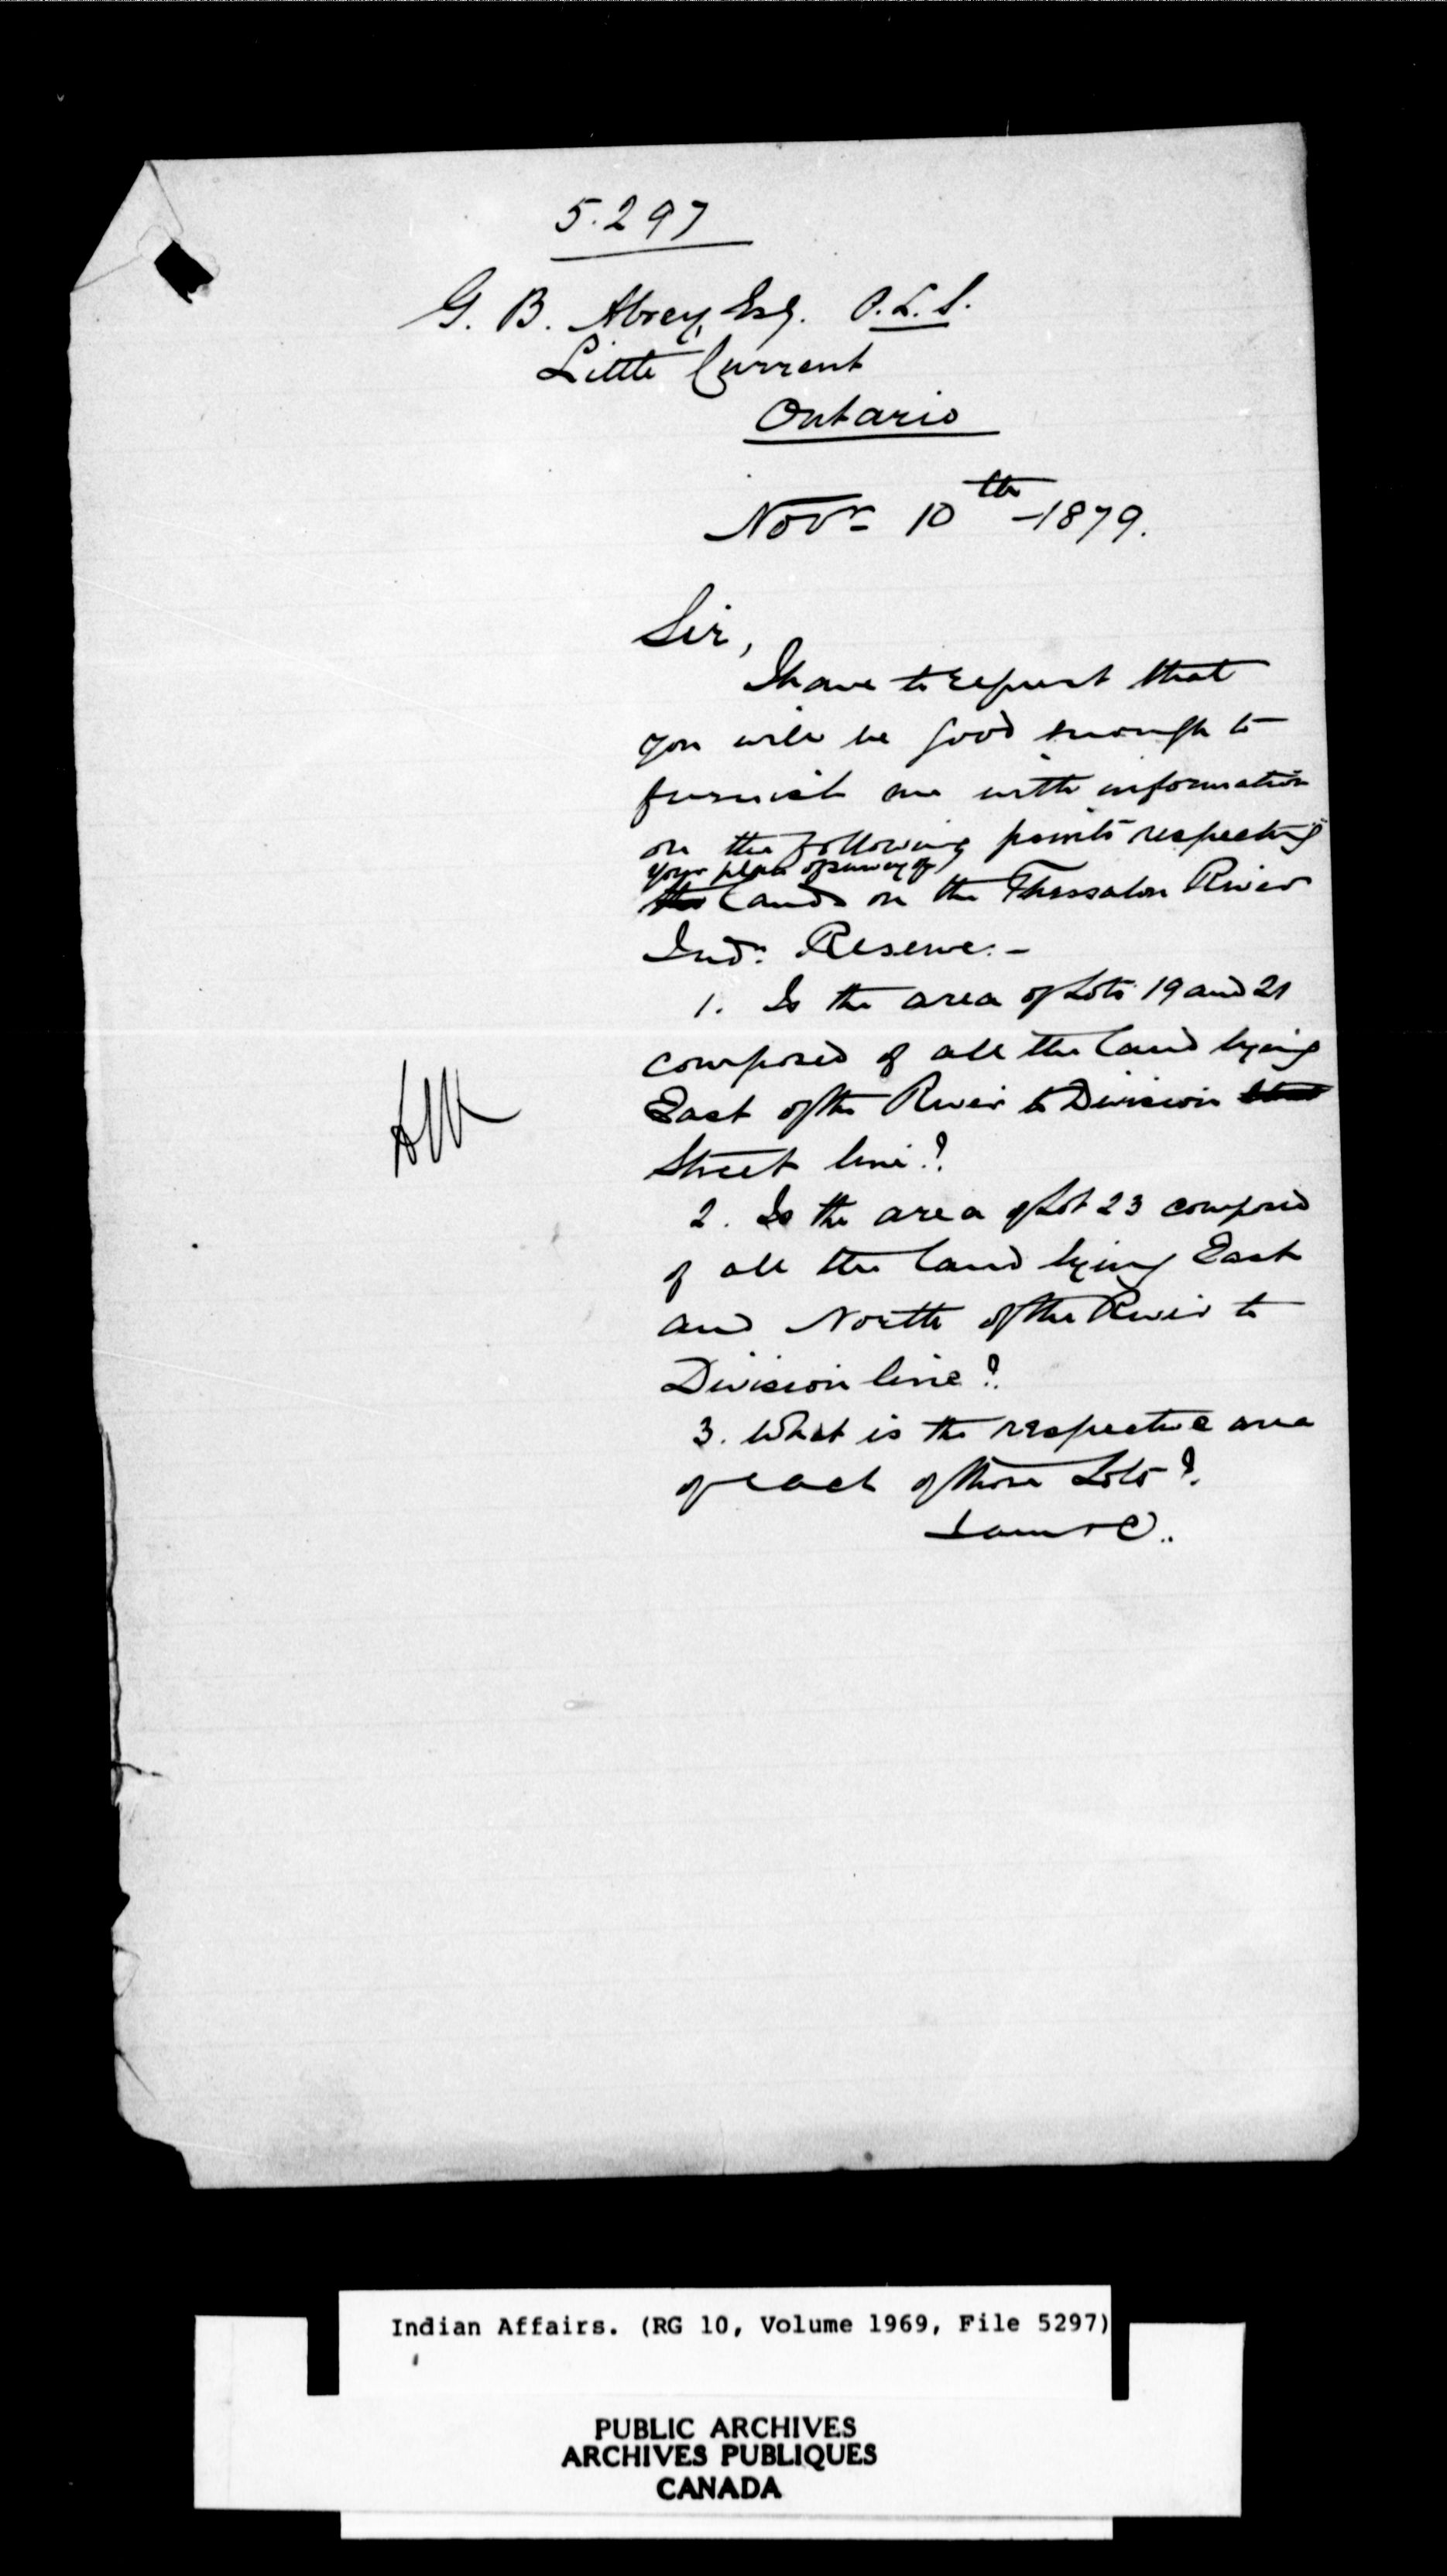 5.297
G. B. Abrey, Esq. P.L.S.
Little Current
Ontario
Novr 10th - 1879.
Sir,
I have to request that
you will be good enough to
furnish me with information
on the following points respecting
your plan of survey of
the lands on the Thessalon River
Ind: Reserve:-
1. Is the area of Lots 19 and 21
composed of all the land lying
East of the River to Division
Street line?
2. Is the area of Lot 23 composed
of all the land lying East
and North of the River to
Division line?
3. What is the respective area
of each of those Lots?
I am &c..
Indian Affairs. (RG 10, Volume 1969, File 5297)
PUBLIC ARCHIVES
ARCHIVES PUBLIQUES
CANADA